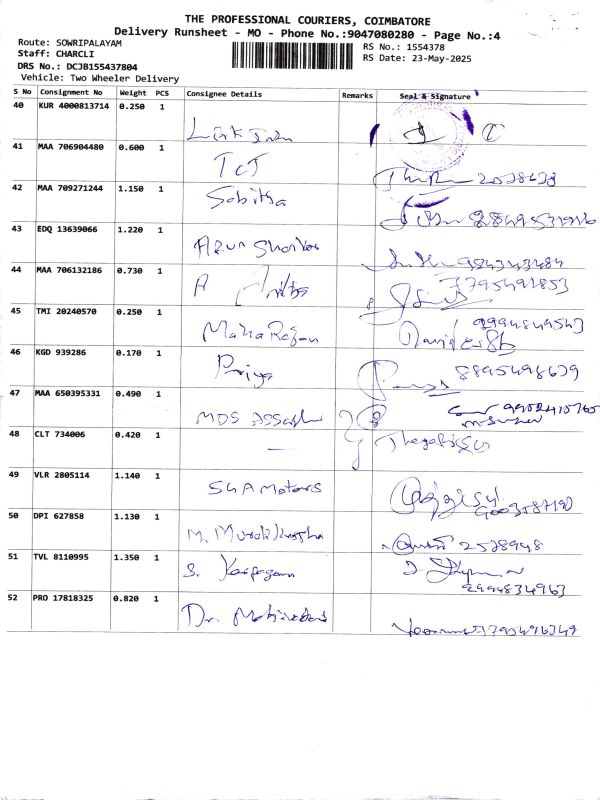 THE PROFESSIONAL COURIERS, COIMBATORE
Delivery Runsheet - MO - Phone No.:9047080280 - Page No.:4
Route: SOWRIPALAYAM
Staff: CHARCLI
RS No.: 1554378
DRS No.: DCJB155437804
RS Date: 23-May-2025
Vehicle: Two Wheeler Delivery
S No Consignment No Weight PCS Consignee Details Remarks Seal & Signature
40 KUR 4000813714 0.250 1
41 MAA 706904480 0.600 1
TCT 2528633
42 MAA 709271244 1.150 1
Sabitha
43 EDQ 13639066 1.220 1
Arun Shankar 984343484
44 MAA 706132186 0.730 1
A 7795491853
45 TMI 20240570 0.250 1
Maha Rajan 9994849543
46 KGD 939286 0.170 1
Priya 8895498639
47 MAA 650395331 0.490 1
MDS 9952415765
48 CLT 734006 0.420 1
49 VLR 2805114 1.140 1
SGA Motors 9003587190
50 DPI 627858 1.130 1
M. 2538948
51 TVL 8110995 1.350 1
S. Karpagam 9994834963
52 PRO 17818325 0.820 1
Dr. 7795496349